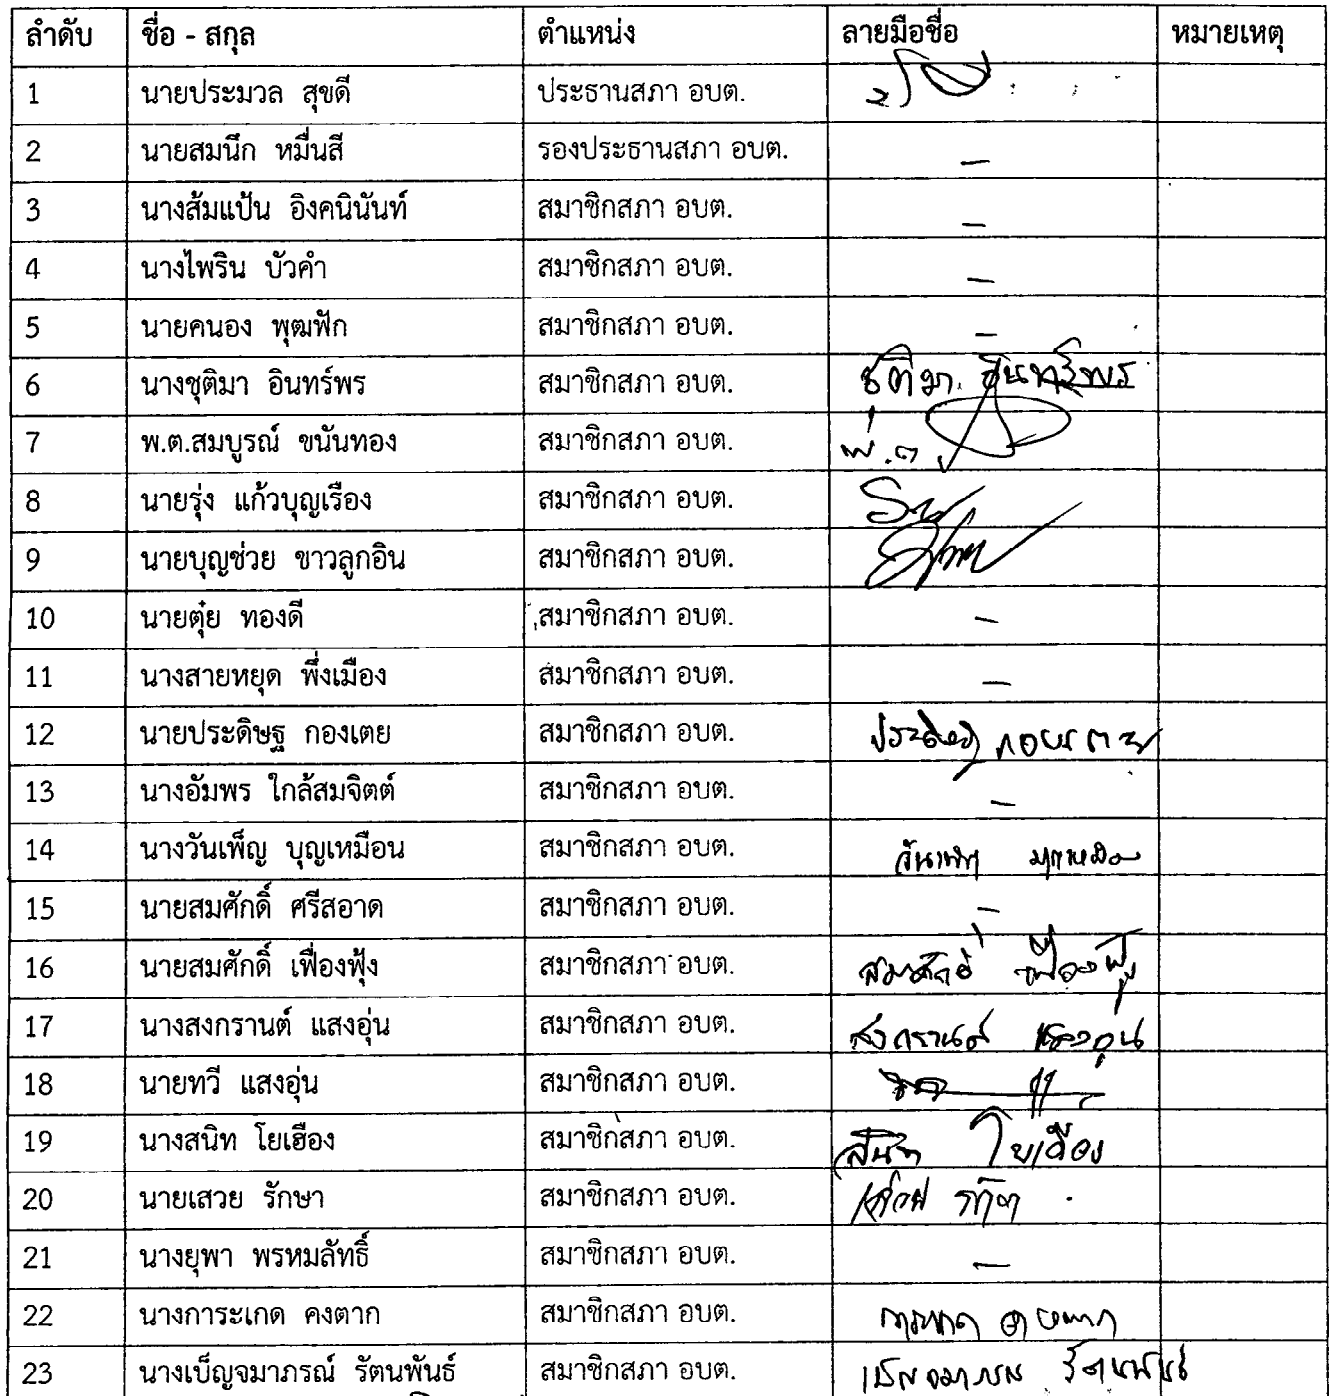 ลำดับ ชื่อ - สกุล ตำแหน่ง ลายมือชื่อ หมายเหตุ
1 นายประมวล สุขดี ประธานสภา อบต.
2 นายสมนึก หมื่นสี รองประธานสภา อบต. –
3 นางส้มแป้น อิงคนินันท์ สมาชิกสภา อบต. –
4 นางไพริน บัวคำ สมาชิกสภา อบต. –
5 นายคนอง พุฒฟัก สมาชิกสภา อบต. –
6 นางชุติมา อินทร์พร สมาชิกสภา อบต. ชุติมา อินทร์พร
7 พ.ต.สมบูรณ์ ขนันทอง สมาชิกสภา อบต. พ.ต.
8 นายรุ่ง แก้วบุญเรือง สมาชิกสภา อบต.
9 นายบุญช่วย ขาวลูกอิน สมาชิกสภา อบต.
10 นายตุ๋ย ทองดี สมาชิกสภา อบต. –
11 นางสายหยุด พึ่งเมือง สมาชิกสภา อบต. –
12 นายประดิษฐ กองเตย สมาชิกสภา อบต. ประดิษฐ กองเตย
13 นางอัมพร ใกล้สมจิตต์ สมาชิกสภา อบต. –
14 นางวันเพ็ญ บุญเหมือน สมาชิกสภา อบต. วันเพ็ญ บุญเหมือน
15 นายสมศักดิ์ ศรีสอาด สมาชิกสภา อบต. –
16 นายสมศักดิ์ เฟื่องฟุ้ง สมาชิกสภา อบต. สมศักดิ์ เฟื่องฟุ้ง
17 นางสงกรานต์ แสงอุ่น สมาชิกสภา อบต. สงกรานต์ แสงอุ่น
18 นายทวี แสงอุ่น สมาชิกสภา อบต.
19 นางสนิท โยเฮือง สมาชิกสภา อบต. สนิท โยเฮือง
20 นายเสวย รักษา สมาชิกสภา อบต. เสวย รักษา
21 นางยุพา พรหมลัทธิ์ สมาชิกสภา อบต. –
22 นางการะเกด คงตาก สมาชิกสภา อบต. การะเกด คงตาก
23 นางเบ็ญจมาภรณ์ รัตนพันธ์ สมาชิกสภา อบต. เบ็ญจมาภรณ์ รัตนพันธ์